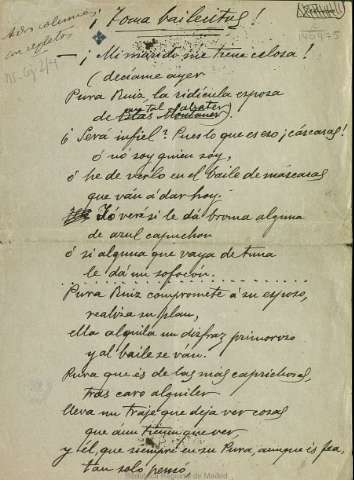 ¡Toma bailecitos!
A dos columnas
con regletos
— ¡Mi marido me tiene celosa!
(decíame ayer
Pura Ruiz, la ridícula esposa
de
¿Será infiel? Pues lo que es eso ¡cáscaras!
ó nó soy quien soy,
ó he de verlo en el baile de máscaras
que ván á dar hoy.
Yó veré si le dá broma alguna
de azul capuchon
ó si alguna que vaya de tuna
le dá un sofocón.
Pura Ruiz compromete á su esposo,
realiza su plan,
ella alquila un disfraz primoroso
y al baile se ván.
Pura que és de las más caprichosas,
tras caro alquiler
lleva un traje que deja ver cosas
que aún tienen que ver
y él, que siempre en su Pura, aunque és fea,
tan solo pensó,
Biblioteca Regional de Madrid